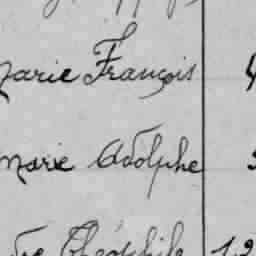 Marie François
Marie Adolphe
Théophile 12